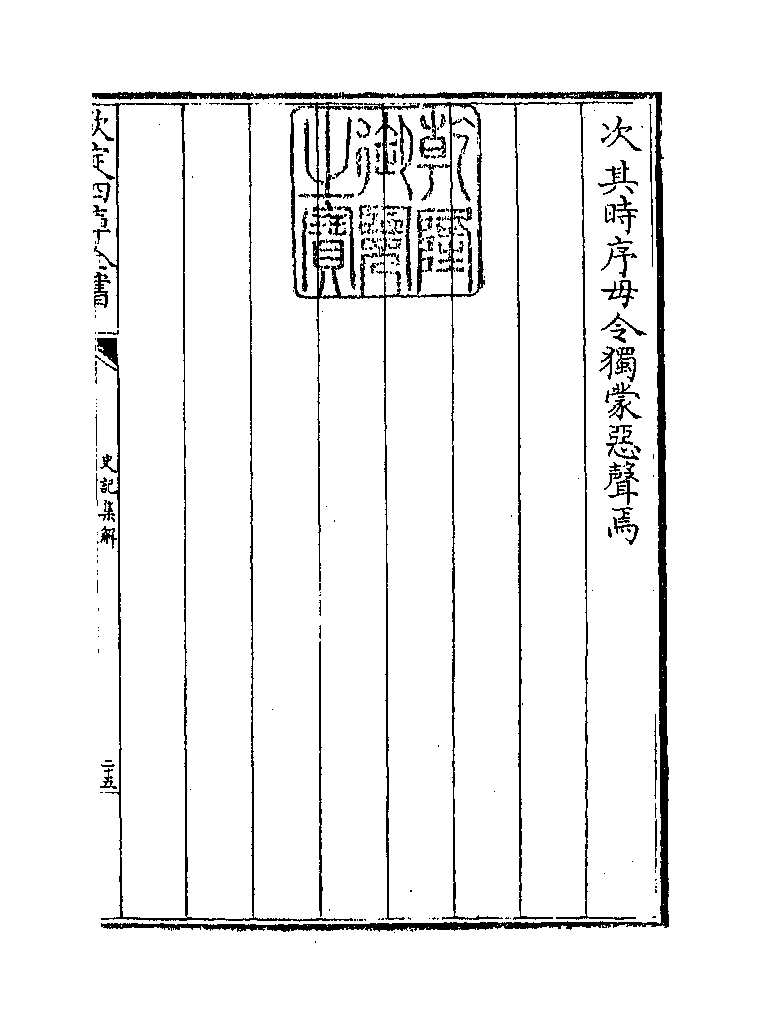 次其時序毋令獨蒙惡聲焉
乾隆
御覽
之寶
欽定四庫全書
史記集解
二十五